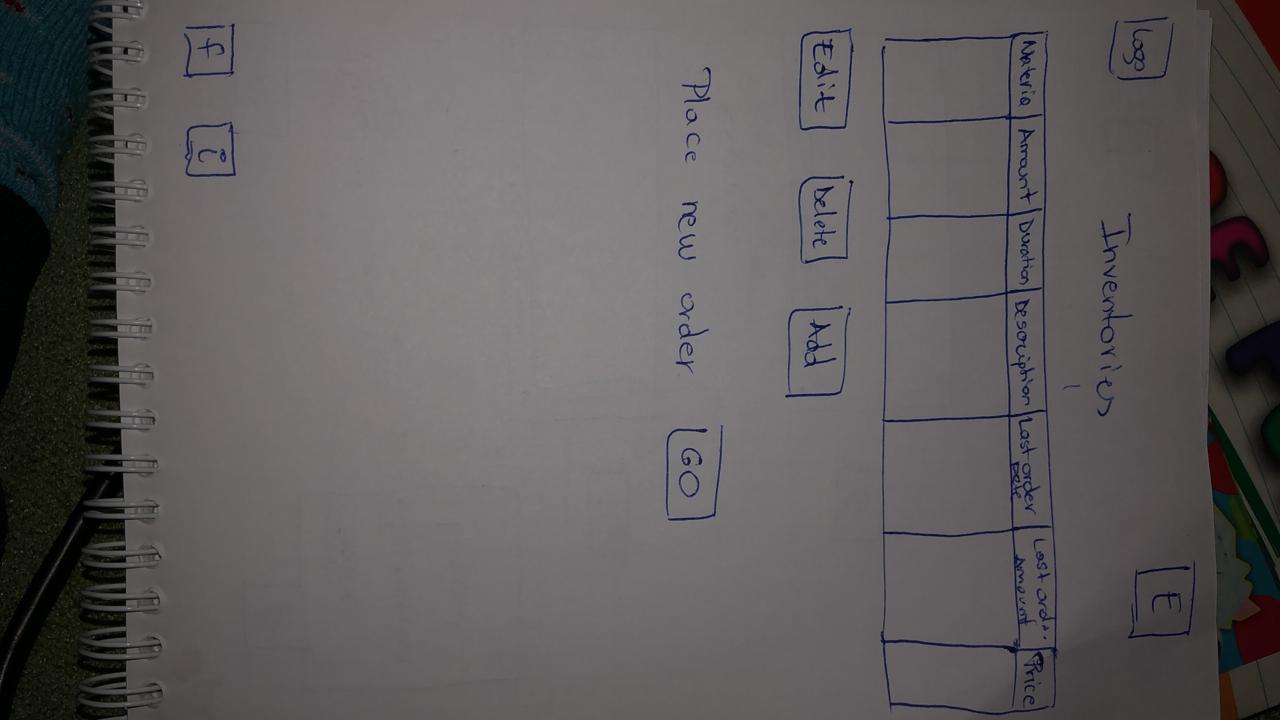 Logo
Inventories
E
Material Amount Duration Description Last order Date Last ord... Amount Price
Edit Delete Add
Place new order GO
f